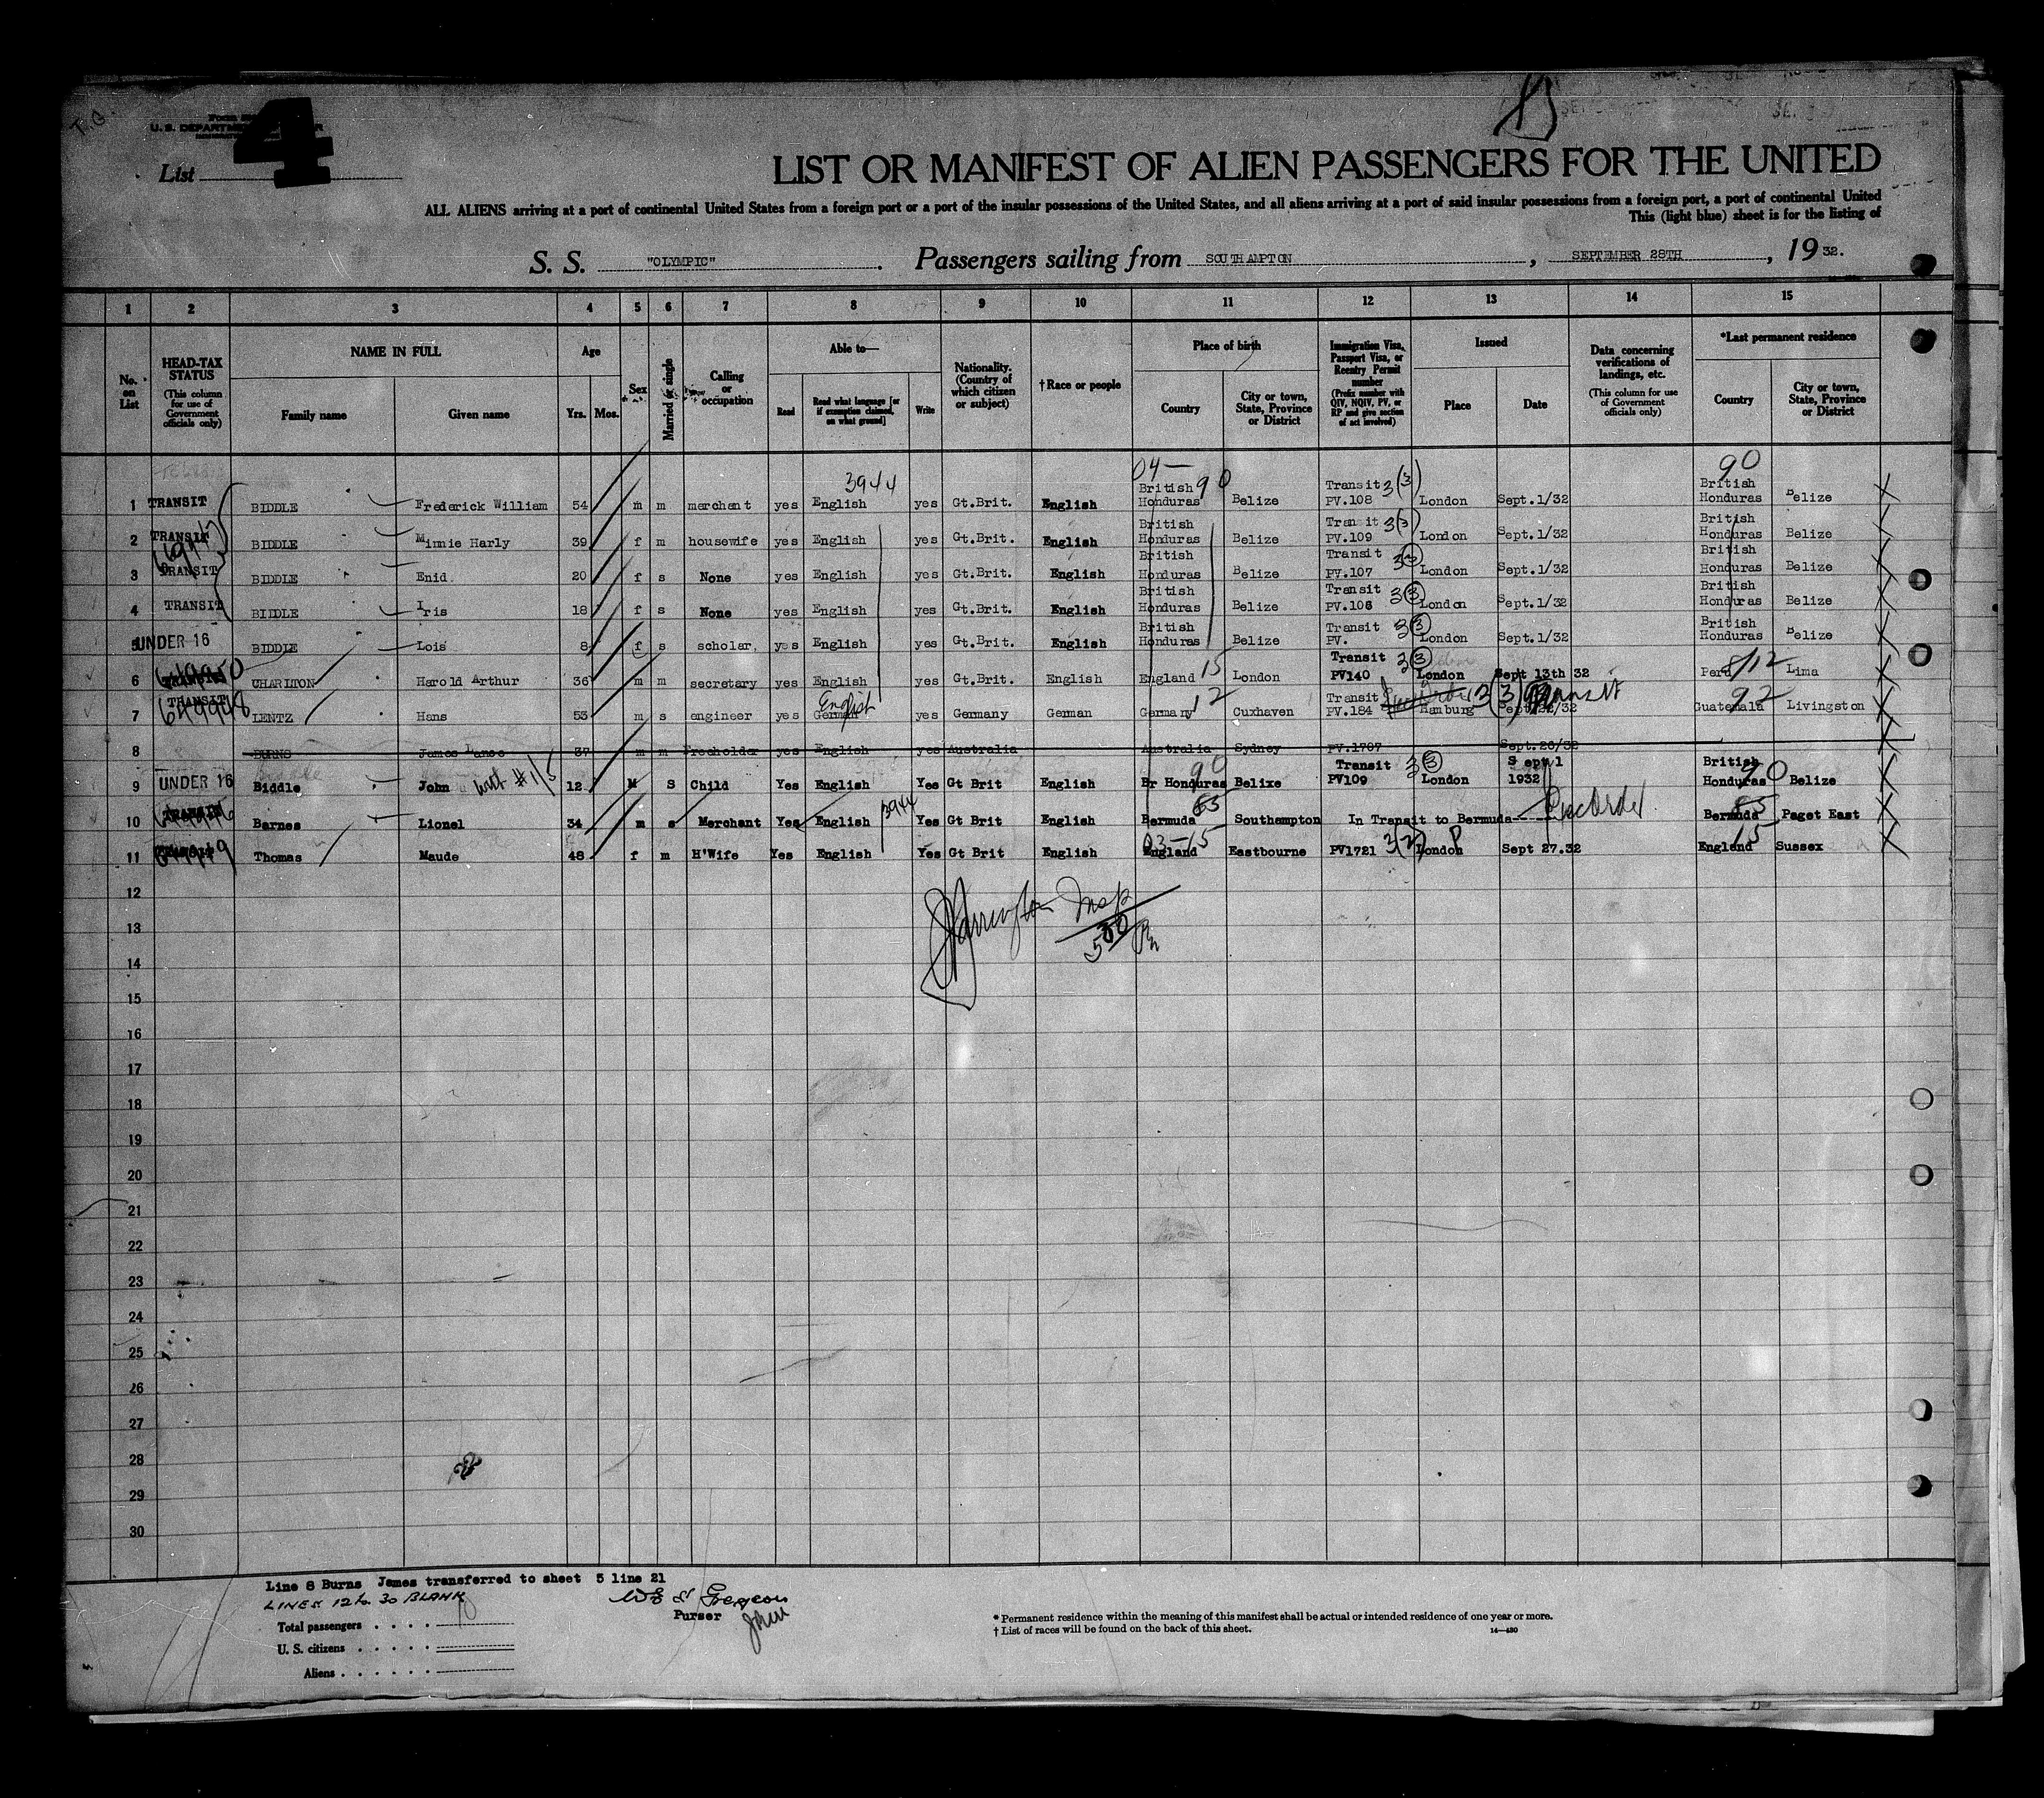 4
List
LIST OR MANIFEST OF ALIEN PASSENGERS FOR THE UNITED
ALL ALIENS arriving at a port of continental United States from a foreign port or a port of the insular possessions of the United States, and all aliens arriving at a port of said insular possessions from a foreign port, a port of continental United
This (light blue) sheet is for the listing of
S. S. "OLYMPIC". Passengers sailing from SOUTHAMPTON, SEPTEMBER 28TH, 19 32.
1 2 3 4 5 6 7 8 9 10 11 12 13 14 15
No. on List
HEAD-TAX STATUS (This column for use of Government officials only)
NAME IN FULL
Family name
Given name
Age
Yrs. Mos.
Sex
Married or single
Calling or occupation
Able to—
Read
Read what language [or if exemption claimed, on what ground]
Write
Nationality. (Country of which citizen or subject)
†Race or people
Place of birth
Country
City or town, State, Province or District
Immigration Visa, Passport Visa, or Reentry Permit number (Prefix number with QIV, NQIV, PV, or RP and give section of act involved)
Issued
Place
Date
Data concerning verifications of landings, etc. (This column for use of Government officials only)
*Last permanent residence
Country
City or town, State, Province or District
04— 3944 90 90
1 TRANSIT BIDDLE Frederick William 54 m m merchant yes English yes Gt.Brit. English British Honduras Belize Transit PV.108 3(3) London Sept.1/32 British Honduras Belize
2 TRANSIT BIDDLE Minnie Harly 39 f m housewife yes English yes Gt.Brit. English British Honduras Belize Transit PV.109 3(3) London Sept.1/32 British Honduras Belize
3 TRANSIT BIDDLE Enid 20 f s None yes English yes Gt.Brit. English British Honduras Belize Transit PV.107 3(3) London Sept.1/32 British Honduras Belize
4 TRANSIT BIDDLE Iris 18 f s None yes English yes Gt.Brit. English British Honduras Belize Transit PV.106 3(3) London Sept.1/32 British Honduras Belize
5 UNDER 16 BIDDLE Lois 8 f s scholar yes English yes Gt.Brit. English British Honduras Belize Transit PV. 3(3) London Sept.1/32 British Honduras Belize
6 TRANSIT CHARLTON Harold Arthur 36 m m secretary yes English yes Gt.Brit. English England 15 London Transit PV140 3(3) London Sept 13th 32 Peru 8/12 Lima
7 TRANSIT LENTZ Hans 53 m s engineer yes German English yes Germany German Germany 12 Cuxhaven Transit PV.184 Hamburg 3(3) Transit Guatemala 92 Livingston
8 BURNS James Lance 37 m m Freeholder yes English yes Australia Australia Sydney PV.1707 Sept.20/32
9 UNDER 16 Biddle John with #1/5 12 M S Child Yes English Yes Gt Brit English Br Honduras 90 Belixe Transit PV109 3(3) London Sept 1 1932 British Honduras 90 Belize
10 TRANSIT Barnes Lionel 34 m s Merchant Yes English 3944 Yes Gt Brit English Bermuda 85 Southampton In Transit to Bermuda----- Bermuda 85 Paget East
11 Thomas Maude 48 f m H'Wife Yes English Yes Gt Brit English England 03-15 Eastbourne PV1721 3(2) London P Sept 27.32 England 15 Sussex
12
13
14
15
16
17
18
19
20
21
22
23
24
25
26
27
28
29
30
Line 8 Burns James transferred to sheet 5 line 21
LINES 12 to 30 BLANK
Purser
Total passengers . . . . 10
U. S. citizens . . . . .
Aliens . . . . . .
* Permanent residence within the meaning of this manifest shall be actual or intended residence of one year or more.
† List of races will be found on the back of this sheet. 14—480